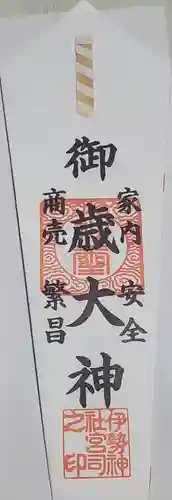 御歳大神
家内安全
商売繁昌
伊勢神
社宮司
之印